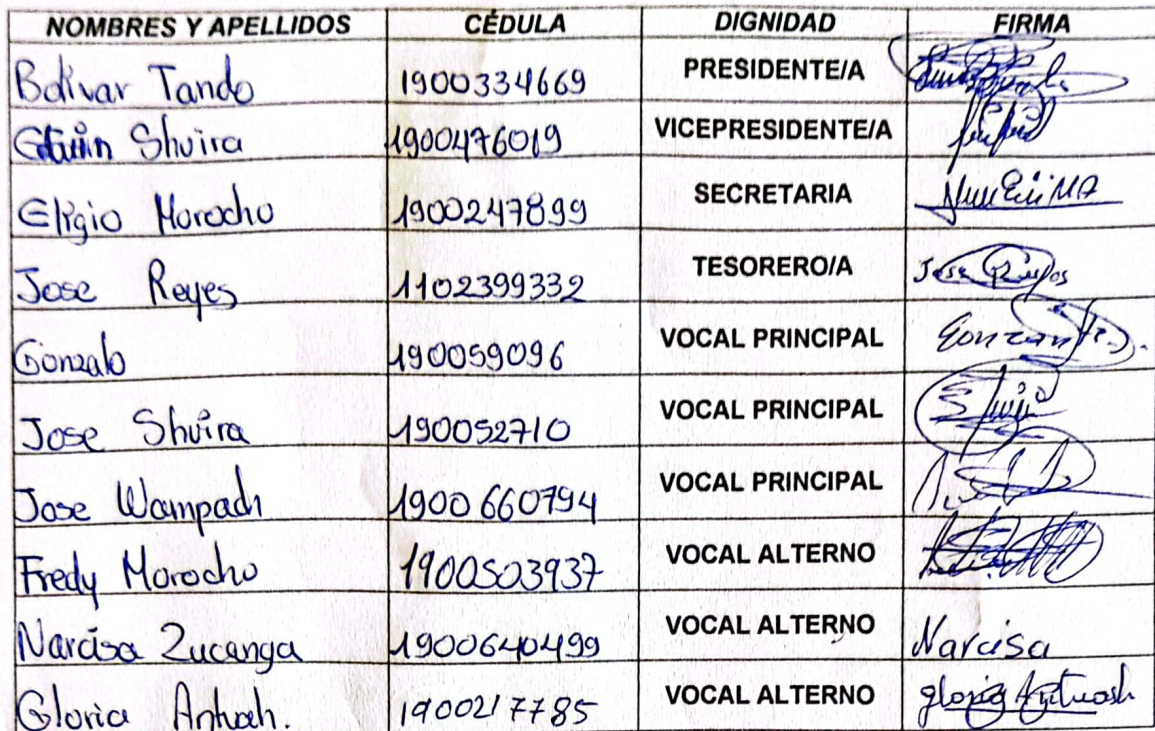 NOMBRES Y APELLIDOS CÉDULA DIGNIDAD FIRMA
Bolivar Tando 1900334669 PRESIDENTE/A
Shvira 1900476019 VICEPRESIDENTE/A
Eligio Morocho 1900247899 SECRETARIA
Jose Reyes 1102399332 TESORERO/A Jose Reyes
Gonzalo 190059096 VOCAL PRINCIPAL
Jose Shvira 190052710 VOCAL PRINCIPAL
Jose Wampach 1900660794 VOCAL PRINCIPAL
Fredy Morocho 1900503937 VOCAL ALTERNO
Narcisa Zucanga 1900640499 VOCAL ALTERNO Narcisa
Gloria Antuah. 1900217785 VOCAL ALTERNO gloria Antuash